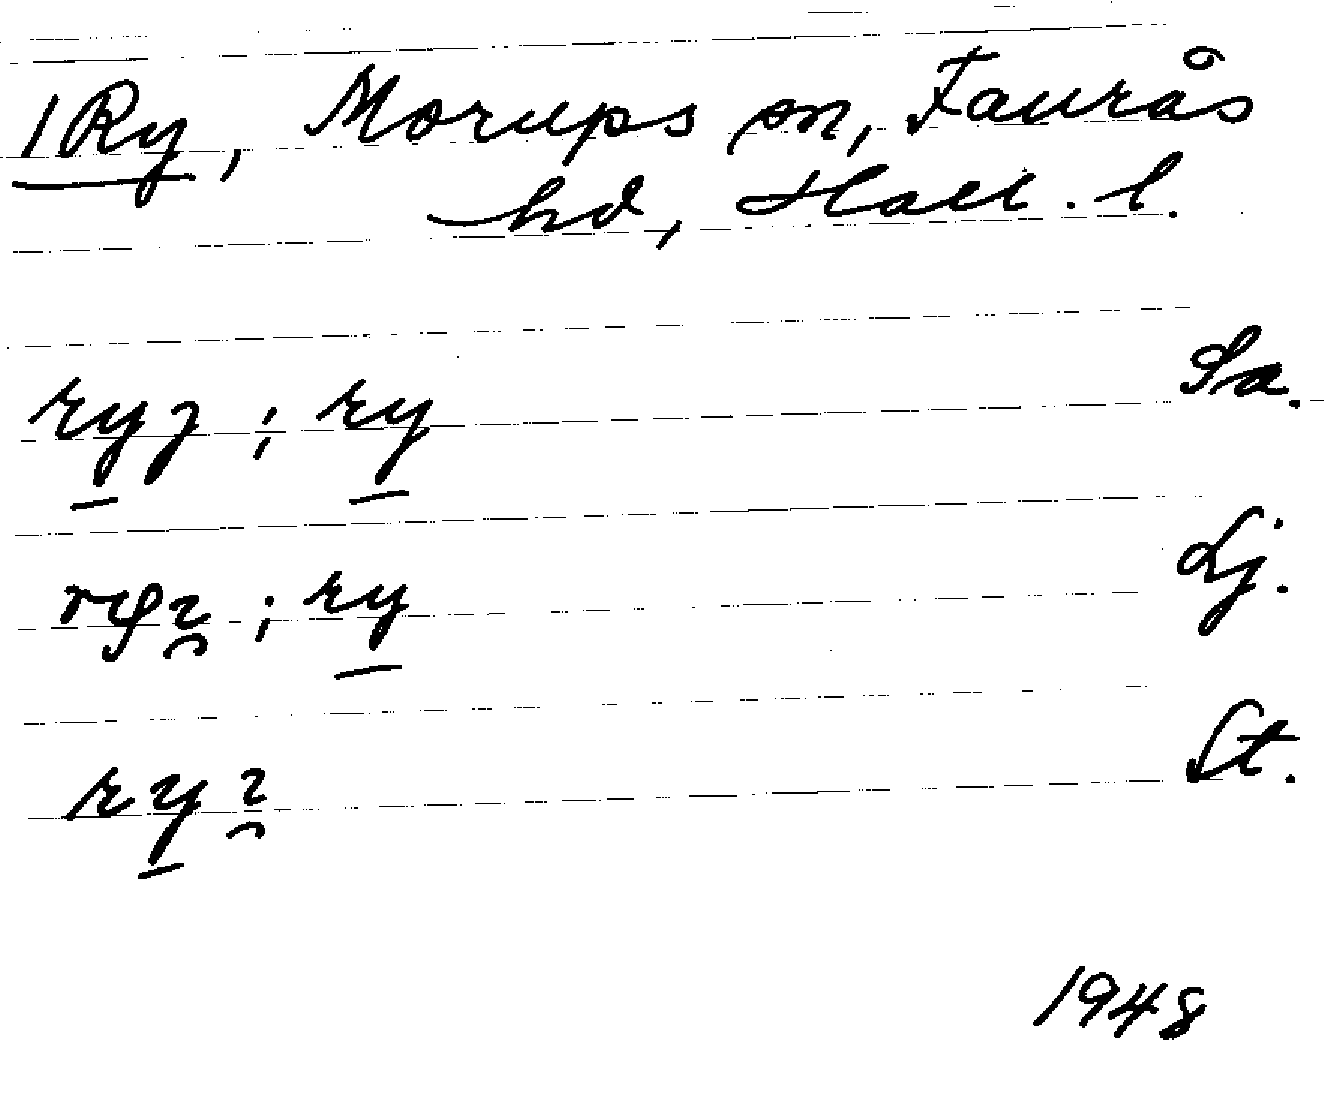 1 Ry, Morups sn, Faurås
hd, Hall. l.
ryȷ ; ry Sa.
ry ; ry Lj.
ry St.
1948